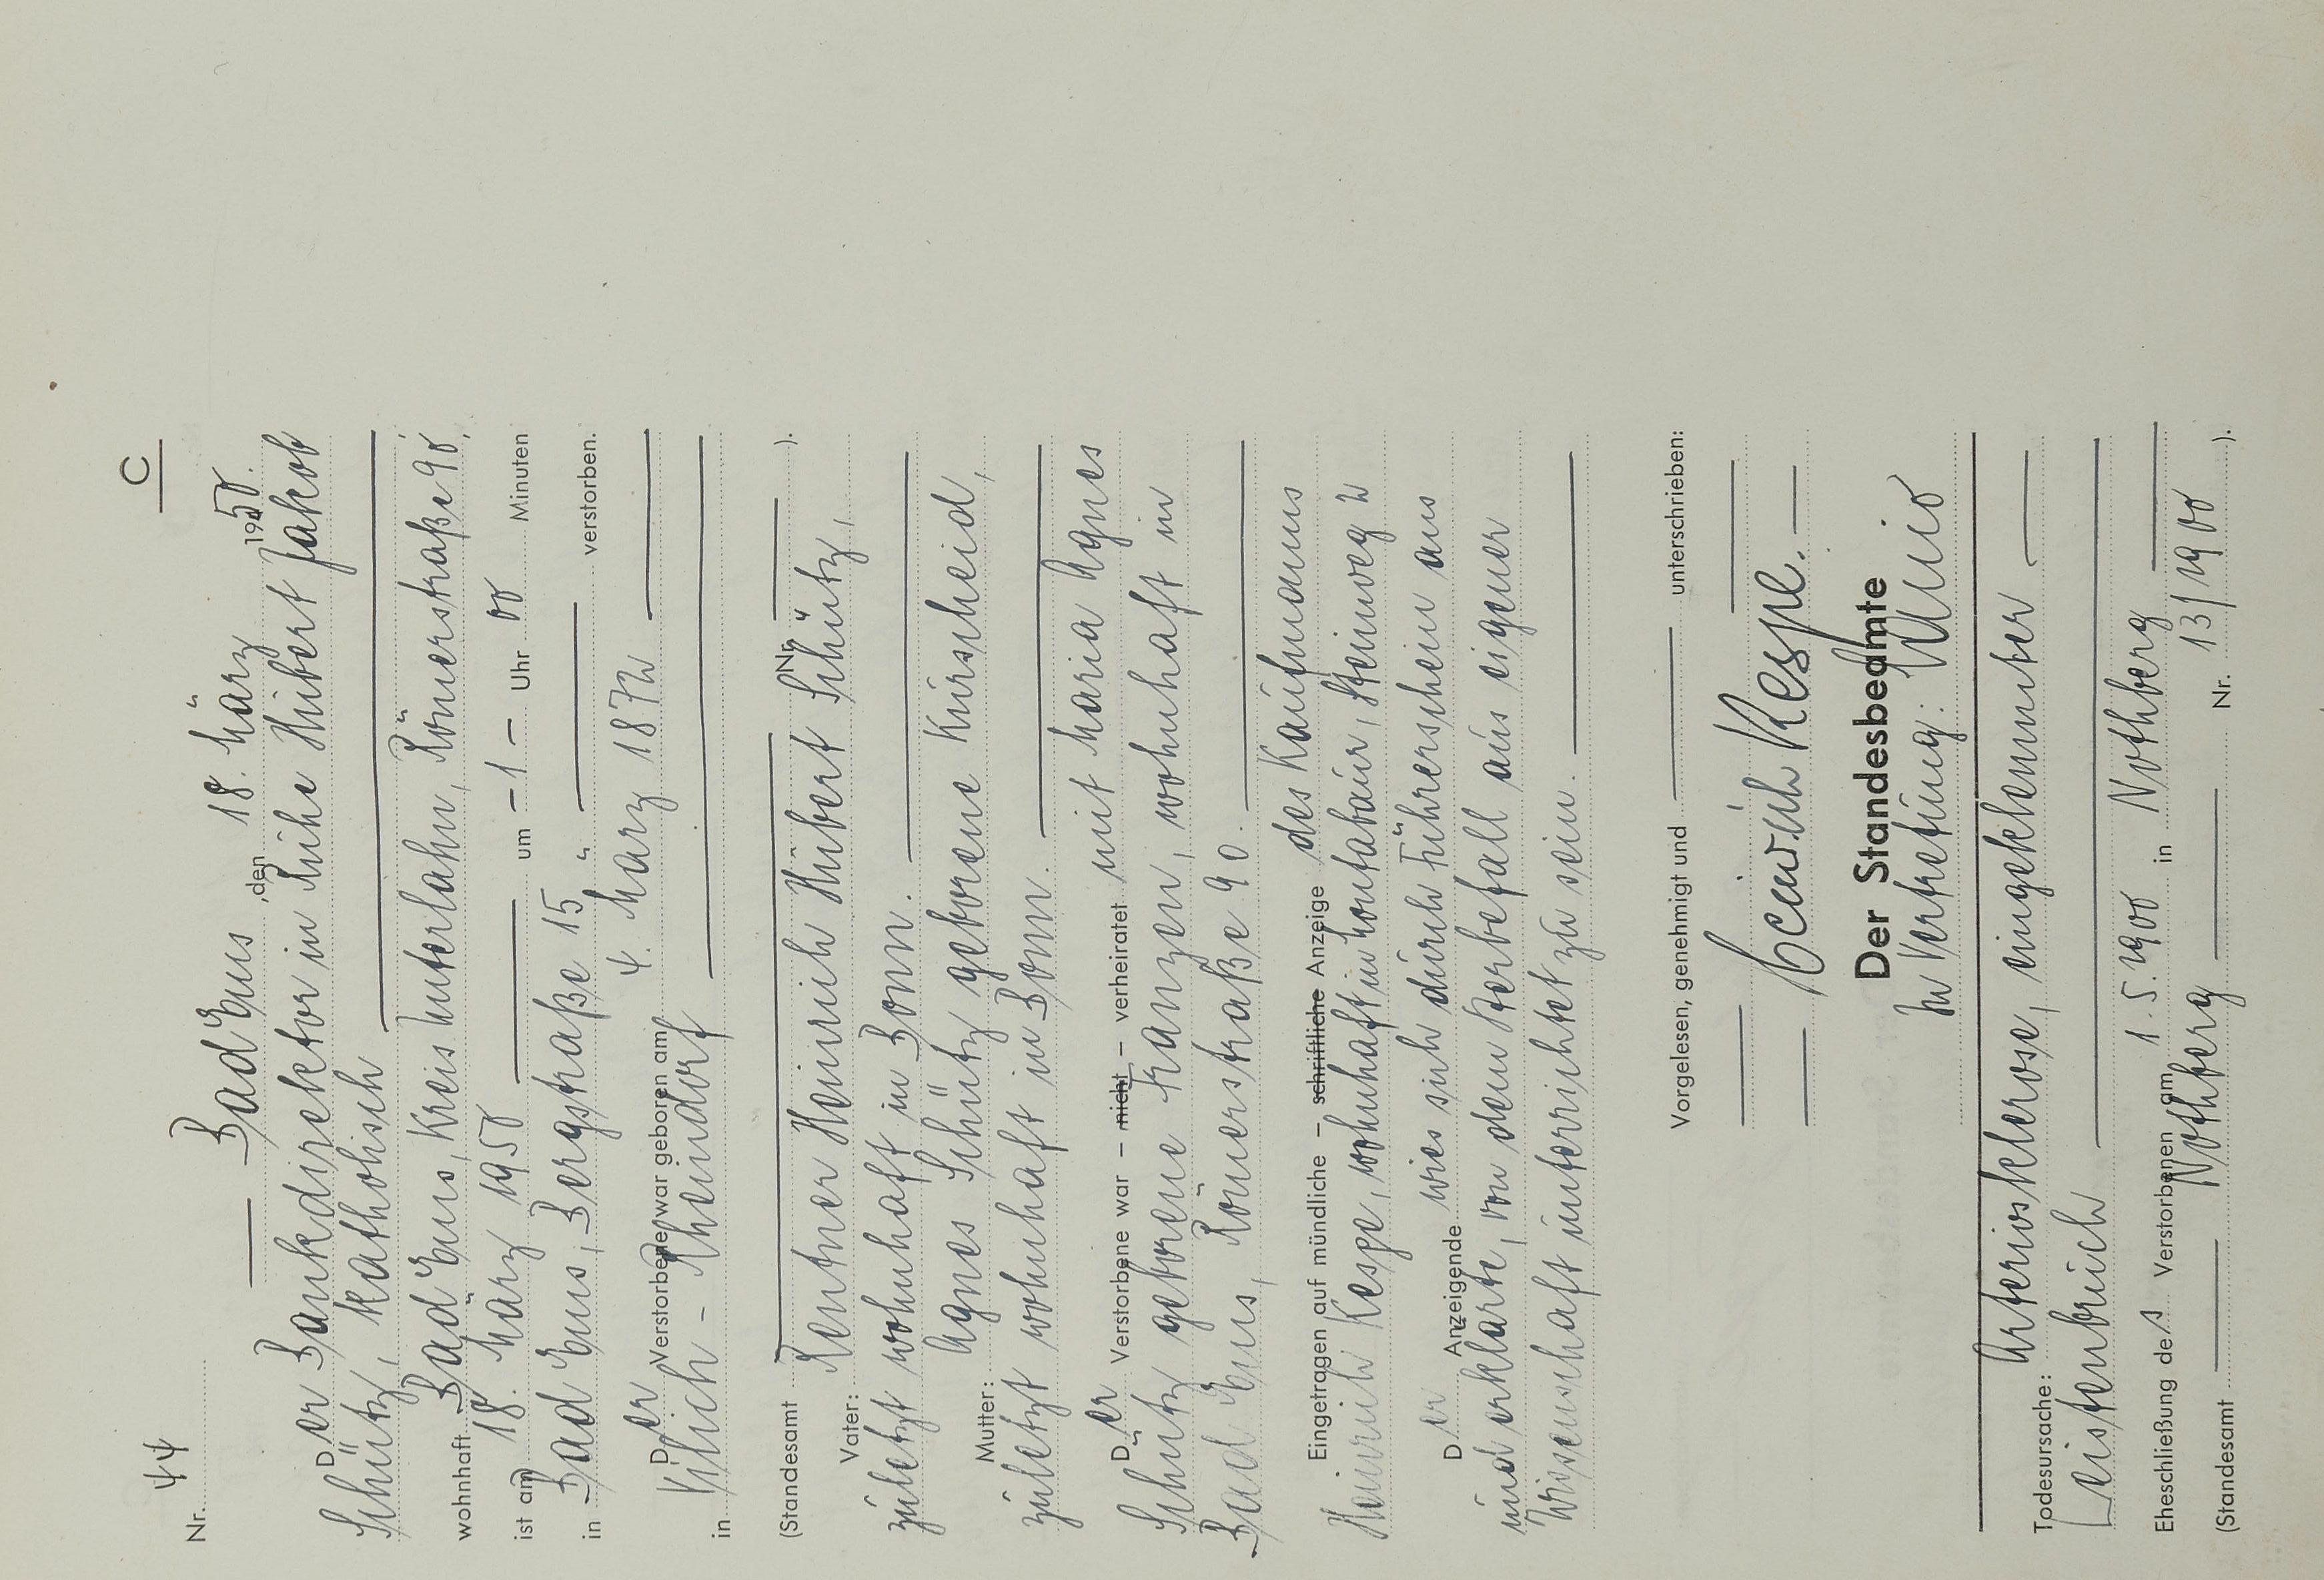 C
Nr. 44
Bad Ems, den 18. März 1950.
Der Bankdirektor in Ruhe Hubert Jakob
Schütz, katholisch
wohnhaft Bad Ems, Kreis Unterlahn, Römerstraße 90,
ist am 18. März 1950 um - 1 - Uhr 00 Minuten
in Bad Ems, Bergstraße 15 verstorben.
Der Verstorbene war geboren am 4. März 1872
in Vilich - Rheindorf
(Standesamt Nr. ).
Vater: Rentner Heinrich Hubert Schütz,
zuletzt wohnhaft in Bonn.
Mutter: Agnes Schütz geborene Kürscheid,
zuletzt wohnhaft in Bonn.
Der Verstorbene war – nicht – verheiratet mit Maria Agnes
Schütz geborene Franzen, wohnhaft in
Bad Ems, Römerstraße 90.
Eingetragen auf mündliche – schriftliche Anzeige des Kaufmanns
Heinrich Kespe, wohnhaft in Montabaur, Steinweg 2
Der Anzeigende wies sich durch Führerschein aus
und erklärte, von dem Sterbefall aus eigener
Wissenschaft unterrichtet zu sein.
Vorgelesen, genehmigt und unterschrieben:
Heinrich Kespe.
Der Standesbeamte
In Vertretung:
Todesursache: Arteriosklerose, eingeklemmter
Leistenbruch
Eheschließung des Verstorbenen am 1.5.1900 in Nothberg
(Standesamt Nothberg Nr. 13/1900 ).